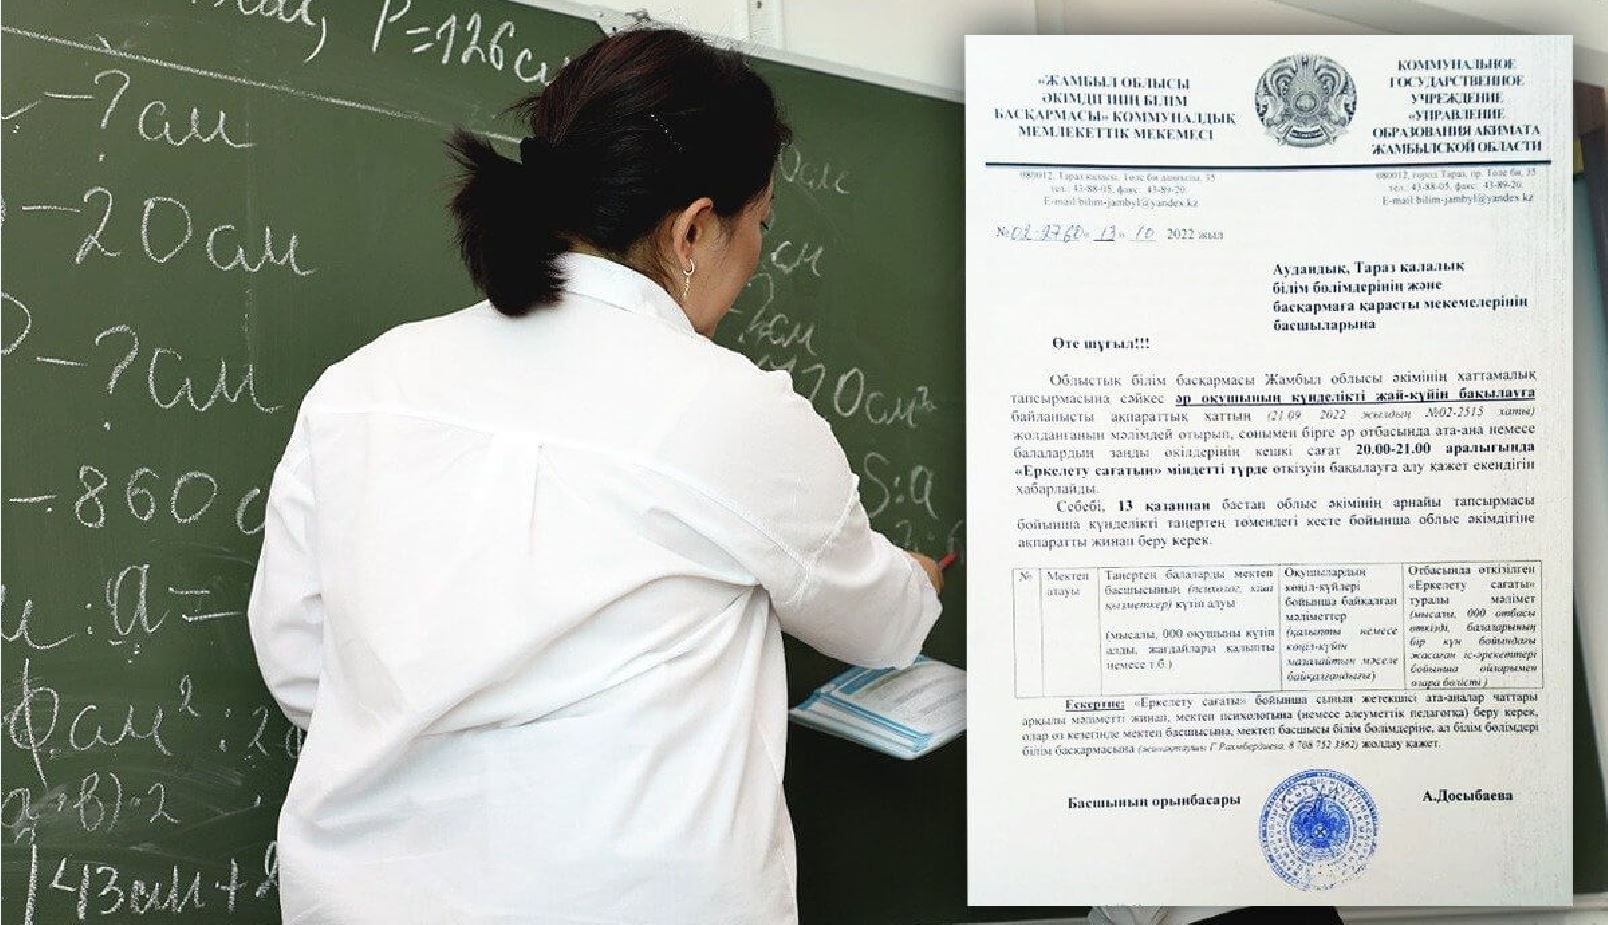 P=126см
-?см
-20см
-?см
см
-860
S:a
43см+
«ЖАМБЫЛ ОБЛЫСЫ
ӘКІМДІГІНІҢ БІЛІМ
БАСҚАРМАСЫ» КОММУНАЛДЫҚ
МЕМЛЕКЕТТІК МЕКЕМЕСІ
КОММУНАЛЬНОЕ
ГОСУДАРСТВЕННОЕ
УЧРЕЖДЕНИЕ
«УПРАВЛЕНИЕ
ОБРАЗОВАНИЯ АКИМАТА
ЖАМБЫЛСКОЙ ОБЛАСТИ
080012, Тараз қаласы, Төле би даңғылы, 35
тел.: 43-88-05, факс: 43-89-20.
E-mail:bilim-jambyl@yandex.kz
080012, город Тараз, пр. Толе би, 35
тел.: 43-88-05, факс: 43-89-20.
E-mail:bilim-jambyl@yandex.kz
№02-2760 «13» 10 2022 жыл
Аудандық, Тараз қалалық
білім бөлімдерінің және
басқармаға қарасты мекемелерінің
басшыларына
Өте шұғыл!!!
Облыстық білім басқармасы Жамбыл облысы әкімінің хаттамалық
тапсырмасына сәйкес әр оқушының күнделікті жай-күйін бақылауға
байланысты ақпараттық хаттың (21.09 2022 жылдың №02-2515 хаты)
жолданғанын мәлімдей отырып, сонымен бірге әр отбасында ата-ана немесе
балалардың заңды өкілдерінің кешкі сағат 20.00-21.00 аралығында
«Еркелету сағатын» міндетті түрде өткізуін бақылауға алу қажет екендігін
хабарлайды.
Себебі, 13 қазаннан бастап облыс әкімінің арнайы тапсырмасы
бойынша күнделікті таңертең төмендегі кесте бойынша облыс әкімдігіне
ақпаратты жинап беру керек.
№
Мектеп
атауы
Таңертең балаларды мектеп
басшысының (психолог,
қызметкер) күтіп алуы
(мысалы, 000 оқушыны күтіп
алды, жағдайлары қалыпты
немесе т.б.)
Оқушылардың
көңіл-күйлері
бойынша байқалған
мәліметтер
(қалыпты немесе
көңіл-күйін
мазалайтын мәселе
байқалғандығы)
Отбасында өткізілген
«Еркелету сағаты»
туралы мәлімет
(мысалы, 000 отбасы
өткізді, балаларының
бір күн бойындағы
жасаған іс-әрекеттері
бойынша ойларымен
өзара бөлісті)
Ескертпе: «Еркелету сағаты» бойынша сынып жетекшісі ата-аналар чаттары
арқылы мәліметті жинап, мектеп психологына (немесе әлеуметтік педагогқа) беру керек,
олар өз кезегінде мектеп басшысына, мектеп басшысы білім бөлімдеріне, ал білім бөлімдері
білім басқармасына (жинақтаушы Г.Рахмбердиева, 8 708 752 3562) жолдау қажет.
Басшының орынбасары
А.Досыбаева